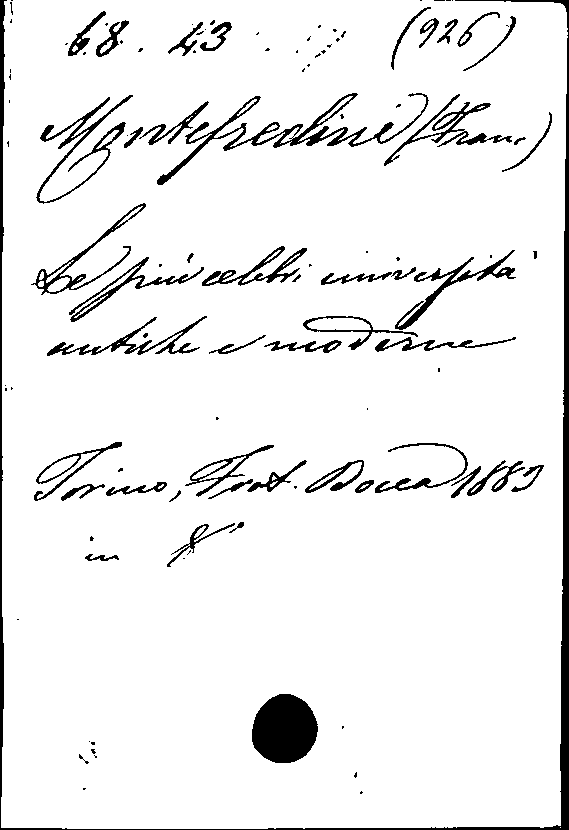 68. 43 (926)
Montefredini (Franc)
Le più celebri università
antiche e moderne
Torino, Frat. Bocca 1883
in 8°